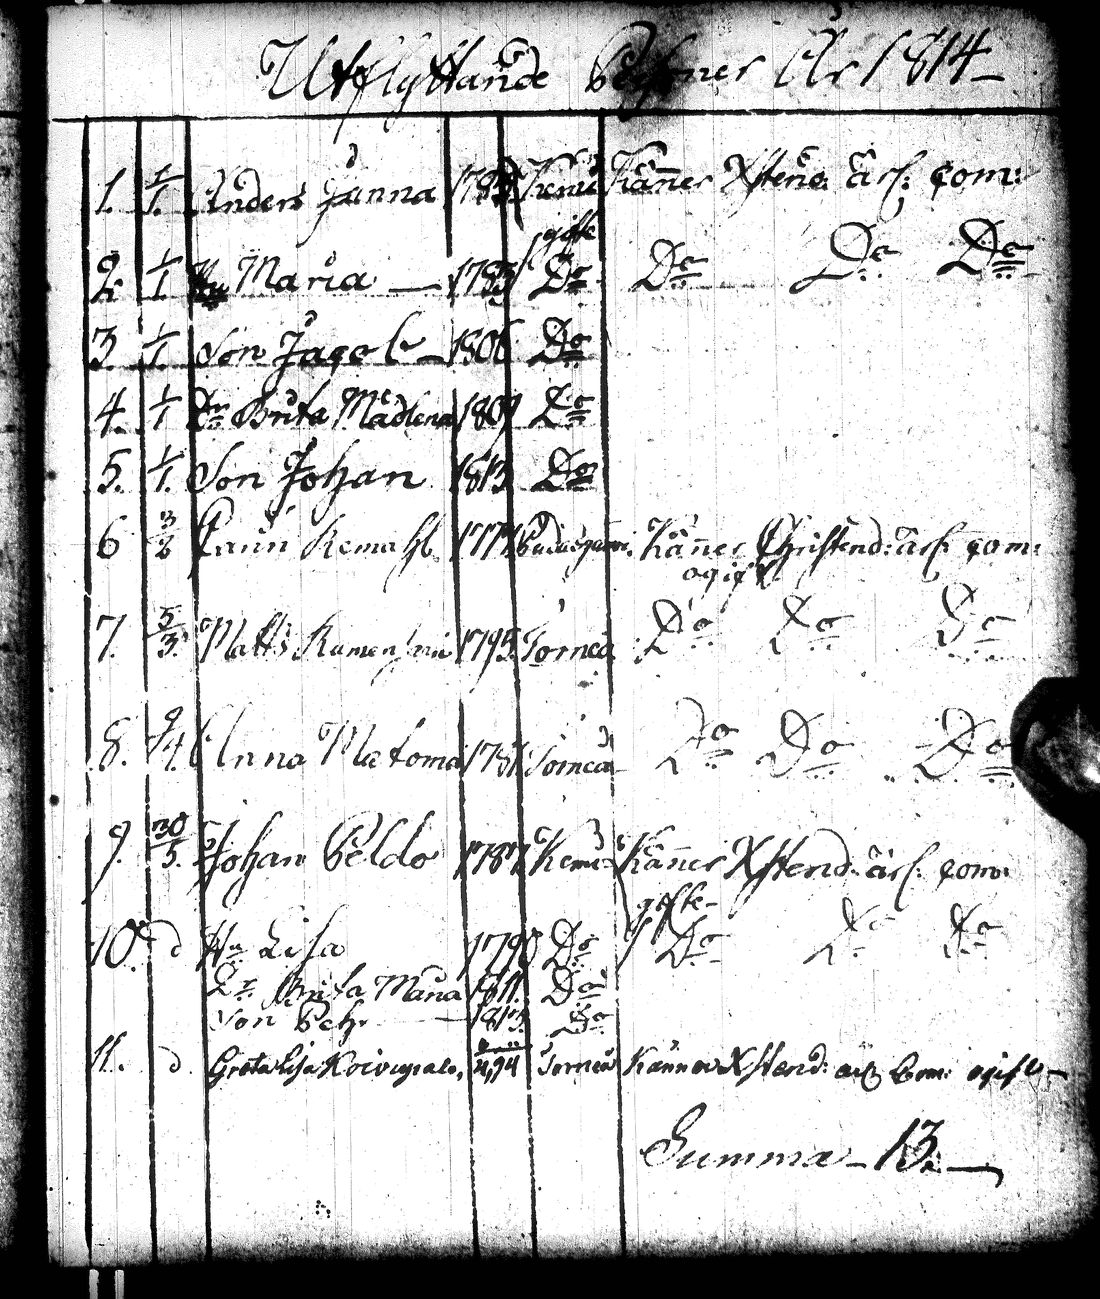 Utflyttande Personer År 1814
1. 1/1. Anders Janna 1783 Kemi Känner Xstend. ärl: com:
gifte
2. 1/1 Hu Maria 1785 Do Do Do Do
3. 1/1. Son Jacob 1806 Do
4. 1/1 Dr Brita Madlena 1809 Do
5. 1/1. Son Johan 1813 Do
6 3/2 1777 Känner Christend: ärl: com:
ogift
7. 5/3. Matts 1795 Torneå Do Do Do
8. 9/4. Anna 1781 Torneå Do Do Do
9. 30/5. Johan Peldo 1787 Kemi Känner Xstend. ärl: com:
gifte
10. d Hu Lisa 1790 Do Do Do Do
Dr Brita Maria 1811. Do
Son Pehr 1813 Do
11. d Greta Lisa 94 Torneå Känner Xstend: ärl com: ogift
Summa 13.